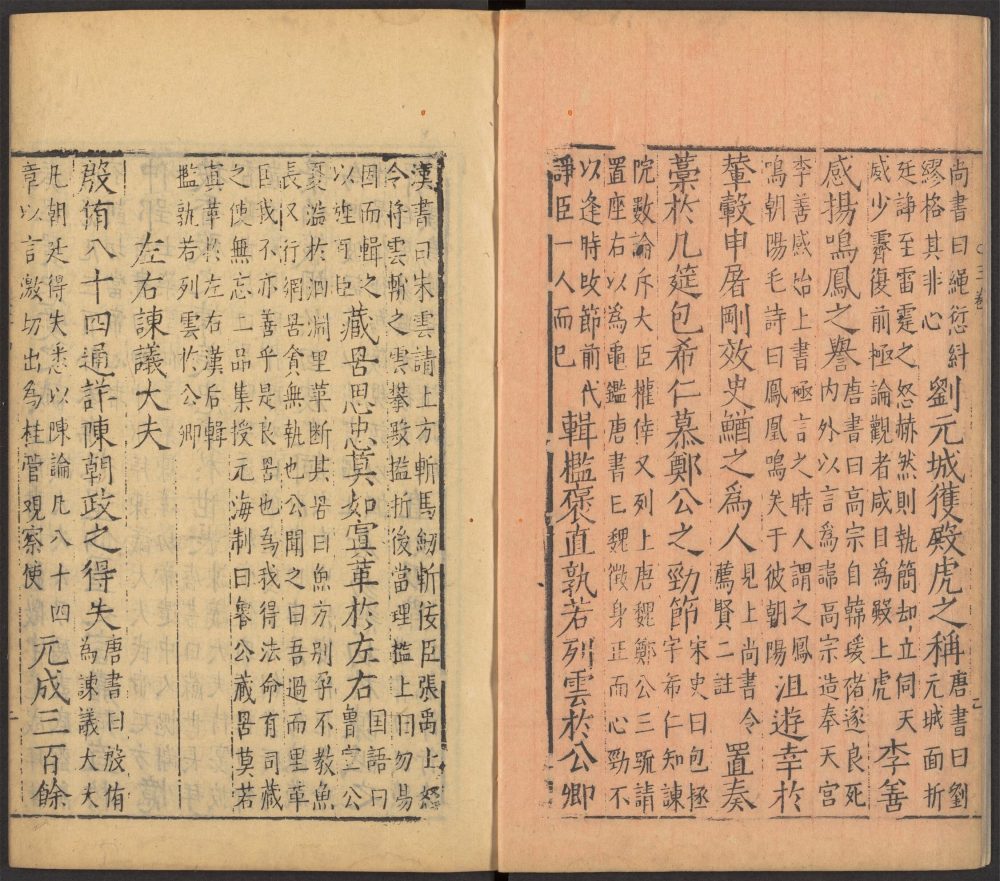 尚書曰繩愆糾
繆格其非心
劉元城獲殿虎之稱
唐書曰劉
元城面折
廷諍至雷霆之怒赫然則執簡却立伺天
威少霽復前極論觀者咸目為殿上虎
李善
感揚鳴鳳之譽
唐書曰高宗自韓瑗禇遂良死
内外以言為諱高宗造奉天宫
李善感始上書極言之時人謂之鳳
鳴朝陽毛詩曰鳳凰鳴矣于彼朝陽
沮遊幸於
輦轂申屠剛效史鰌之為人
見上尚書令
薦賢二註
置奏
藁於几筵包希仁慕鄭公之勁節
宋史曰包拯
字希仁知諫
院數論斥大臣權倖又列上唐魏鄭公三疏請
置座右以為龜鑑唐書曰魏徵身正而心勁不
以逢時改節前代
諍臣一人而已
輯檻褒直孰若列雲於公卿
漢書曰朱雲請上方斬馬劒斬佞臣張禹上怒
令將雲斬之雲攀殿檻折後當理檻上曰勿易
因而輯之
以旌直臣
藏罟思忠莫如寘革於左右
国語曰
魯宣公
夏濫於泗淵里革断其罟曰魚方别孕不教魚
長又行網罟貪無執也公聞之曰吾過而里革
匡我不亦善乎是良罟也為我得法命有司藏
之使無忘上品集授元海制曰魯公藏罟莫若
寘革於左右漢后輯
檻孰若列雲於公卿
左右諫議大夫
殷侑八十四通詐陳朝政之得失
唐書曰殷侑
為諫議大夫
凡朝廷得失悉以陳論凡八十四
章以言激切出為桂管觀察使
元成三百餘
三卷